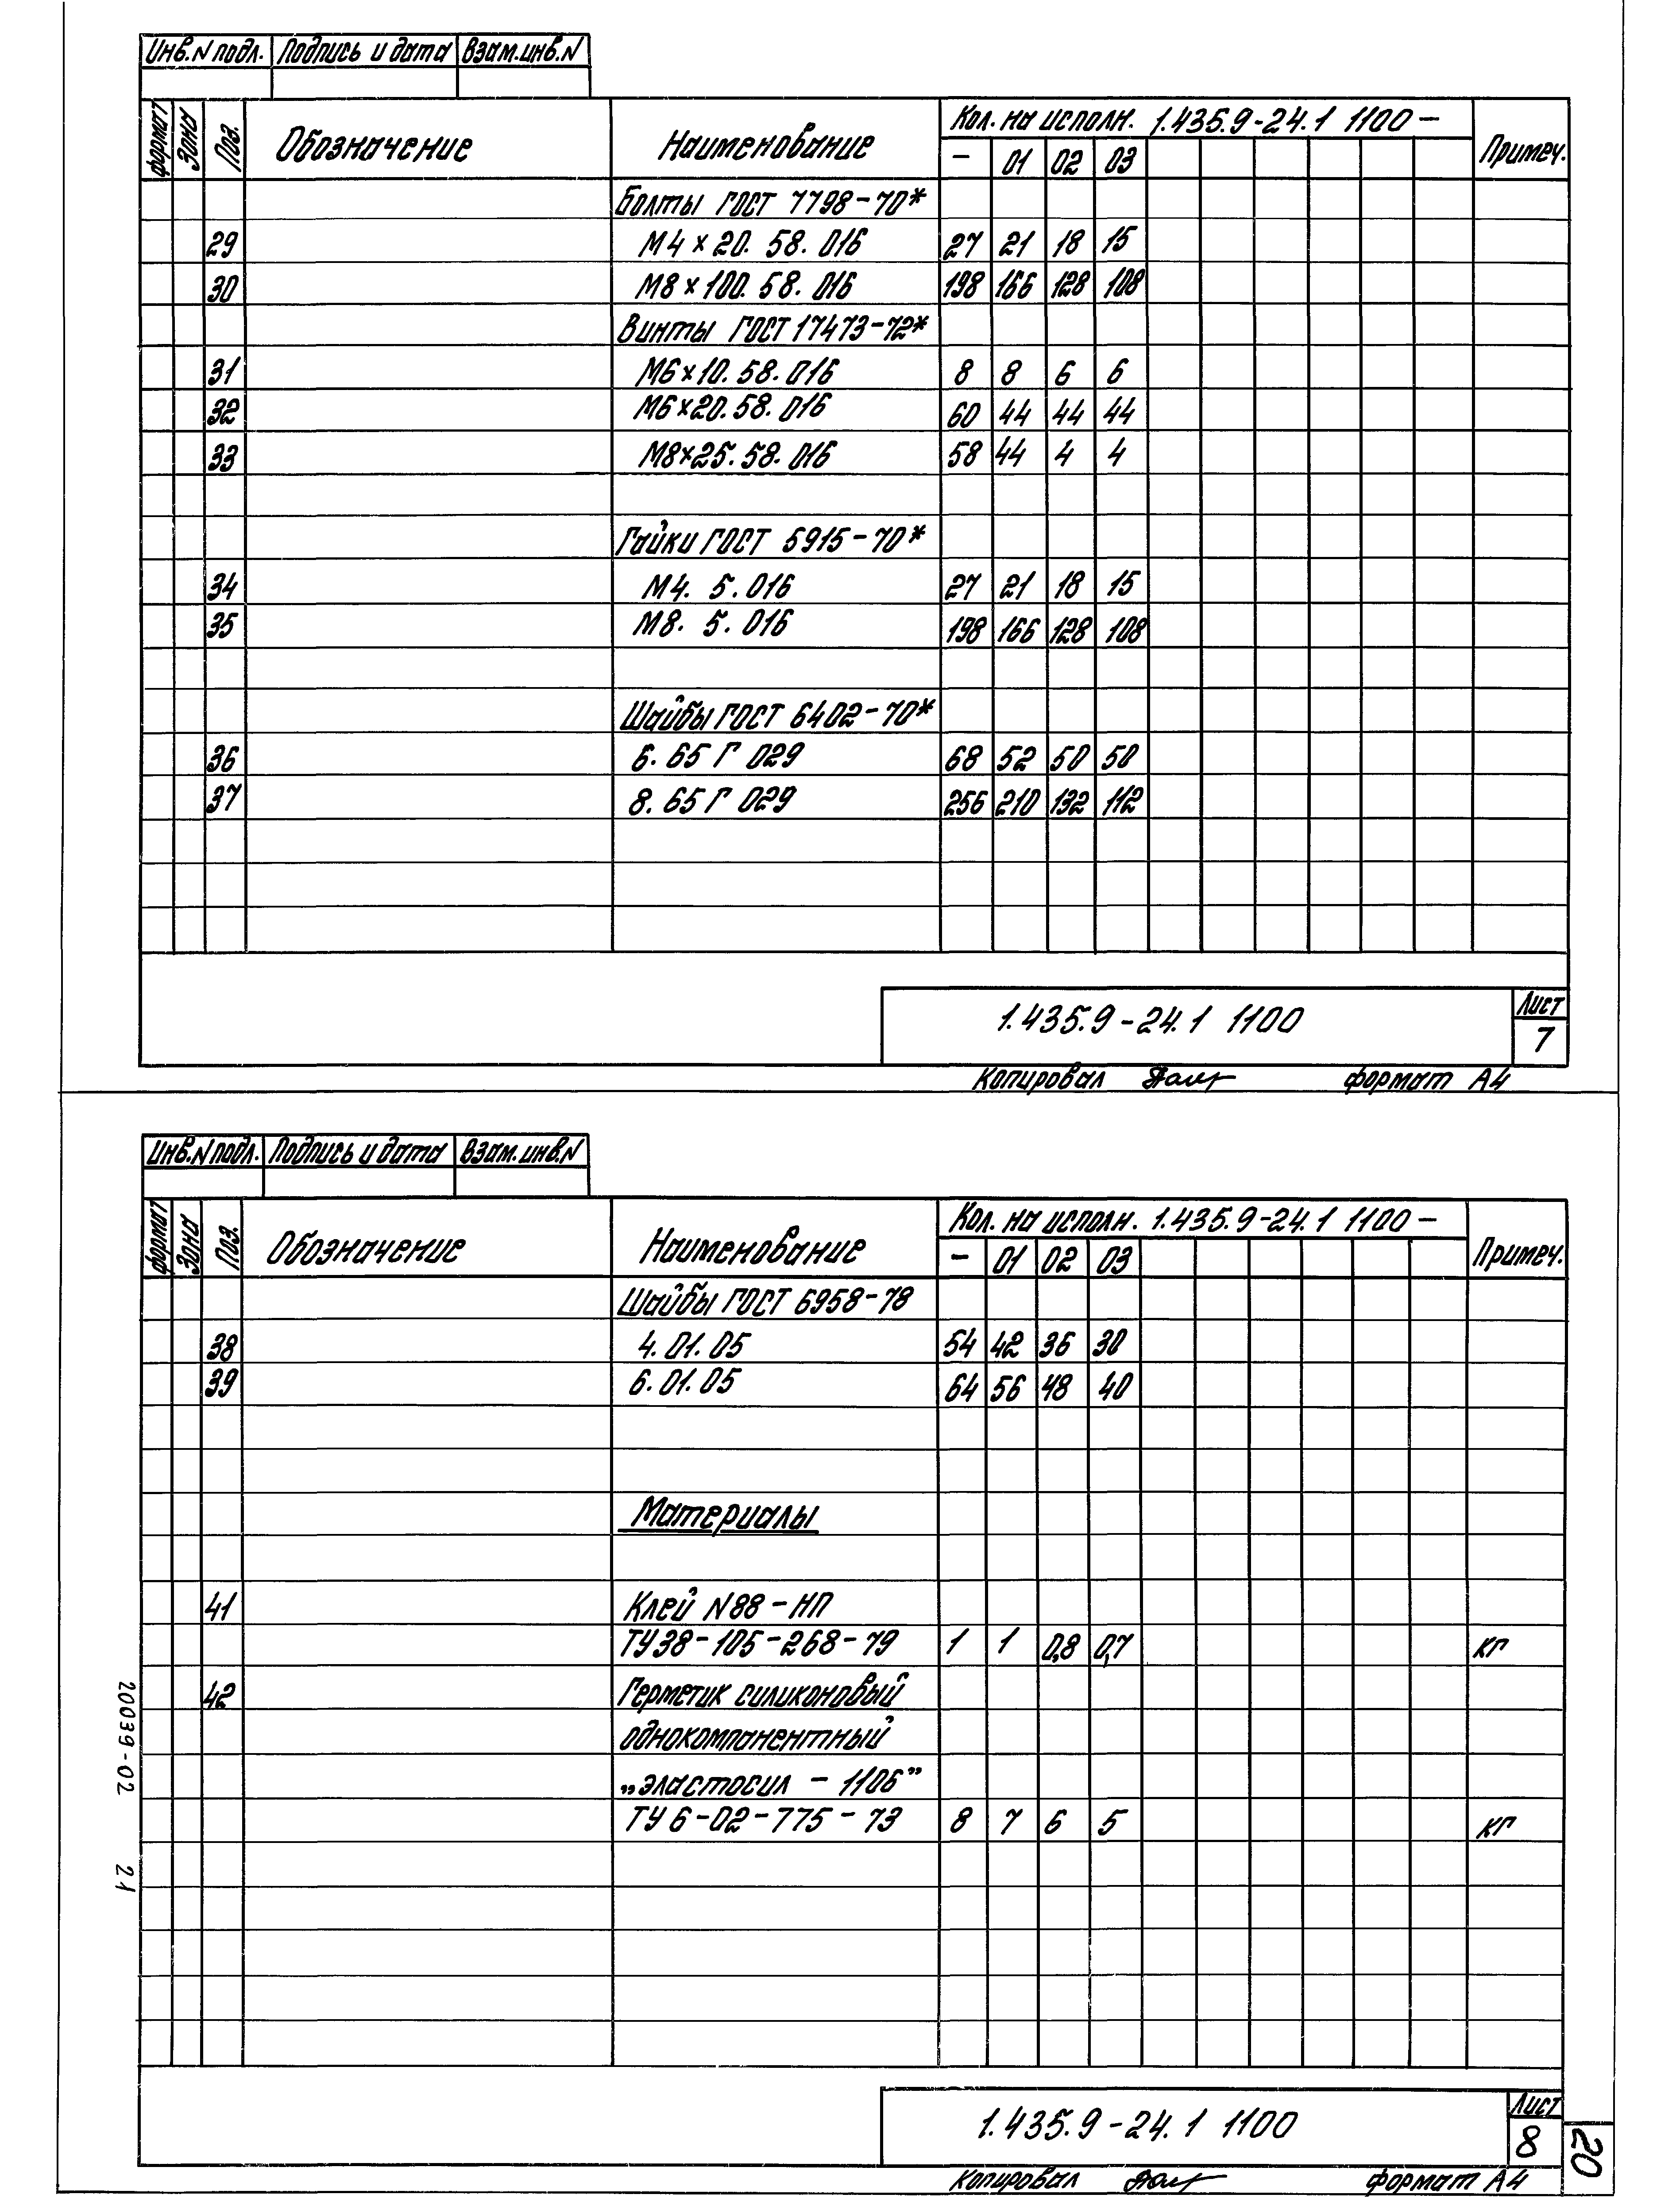 Инв.N подл. Подпись и дата Взам.инв.N
формат Зона Поз. Обозначение Наименование Кол. на исполн. 1.435.9-24.1 1100 — Примеч.
— 01 02 03
Болты ГОСТ 7798-70*
29 М4×20. 58. 016 27 21 18 15
30 М8×100. 58. 016 198 166 128 108
Винты ГОСТ 17473-72*
31 М6×10. 58. 016 8 8 6 6
32 М6×20. 58. 016 60 44 44 44
33 М8×25. 58. 016 58 44 4 4
Гайки ГОСТ 5915-70*
34 М4. 5. 016 27 21 18 15
35 М8. 5. 016 198 166 128 108
Шайбы ГОСТ 6402-70*
36 6. 65 Г 029 68 52 50 50
37 8. 65 Г 029 256 210 132 112
1.435.9-24.1 1100 Лист
7
Копировал формат А4
Инв.N подл. Подпись и дата Взам.инв.N
формат Зона Поз. Обозначение Наименование Кол. на исполн. 1.435.9-24.1 1100 — Примеч.
— 01 02 03
Шайбы ГОСТ 6958-78
38 4. 01. 05 54 42 36 30
39 6. 01. 05 64 56 48 40
Материалы
41 Клей N88-НП
ТУ38-105-268-79 1 1 0,8 0,7 кг
42 Герметик силиконовый
однокомпанентный
„эластосил - 1106"
ТУ 6-02-775-73 8 7 6 5 кг
20039-02 21
1.435.9-24.1 1100 Лист
8
20
Копировал формат А4